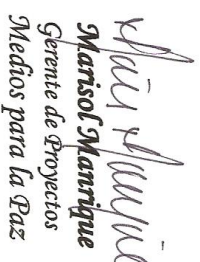 Marisol Manrique
Gerente de Proyectos
Medios para la Paz